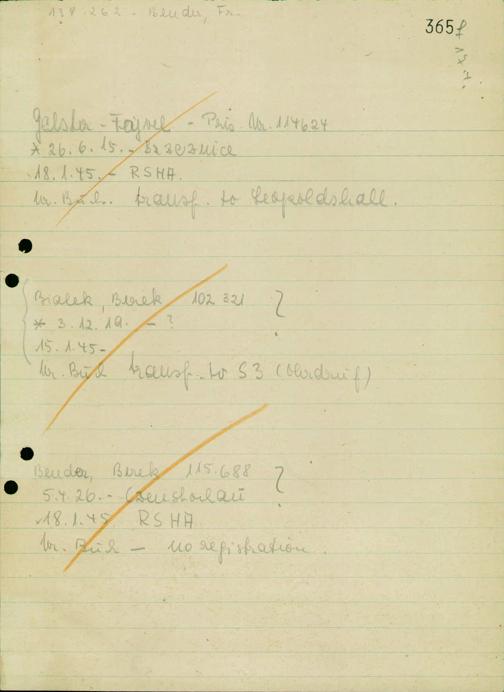 138.262 - Bender, Fr.
365
Gelster - Fajvel - Pris. Nr. 114624
* 26.6.15. - Brzeznice
18.1.45. - RSHA.
Nr. Buch. transf. to Leopoldshall.
Bialek, Berek 102 321 ?
* 3.12.19. - ?
15.1.45-
Nr. Buch transf. to S3 (Ohrdruf)
Bender, Berek 115.688 ?
5.4.26. - Czenstochau
18.1.45 RSHA
Nr. Buch - no registration.